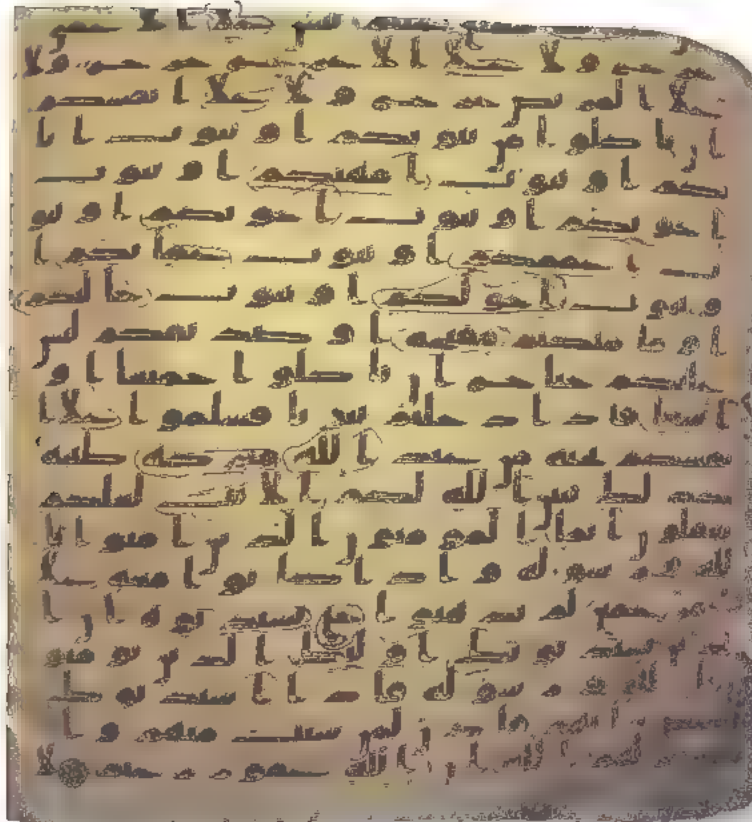 ليس على الا
عمى حرج ولا على الاعرج حرج ولا
على المريض حرج ولا على انفسكم
ان تاكلوا من بيوتكم او بيوت ابا
ئكم او بيوت امهتكم او بيوت
اخونكم او بيوت اخوتكم او بيو
ت اعممكم او بيوت عمتكم ا
و بيوت اخولكم او بيوت خلتكم
او ما ملكتم مفتحه او صديقكم ليس
عليكم جناح ان تاكلوا جميعا او
اشتاتا فاذا دخلتم بيوتا فسلموا على ا
نفسكم تحية من عند الله مبركة طيبة
كذلك يبين الله لكم الايت لعلكم
تعقلون انما المومنون الذين امنوا با
لله ورسوله واذا كانوا معه على
امر جامع لم يذهبوا حتى يستذنوه ان ا
لذين يستذنونك اولئك الذين يومنو
ن بالله ورسوله فاذا استذنوك
لبعض شانهم فاذن لمن شيت منهم وا
ستغفر لهم الله ان الله غفور رحيم لا